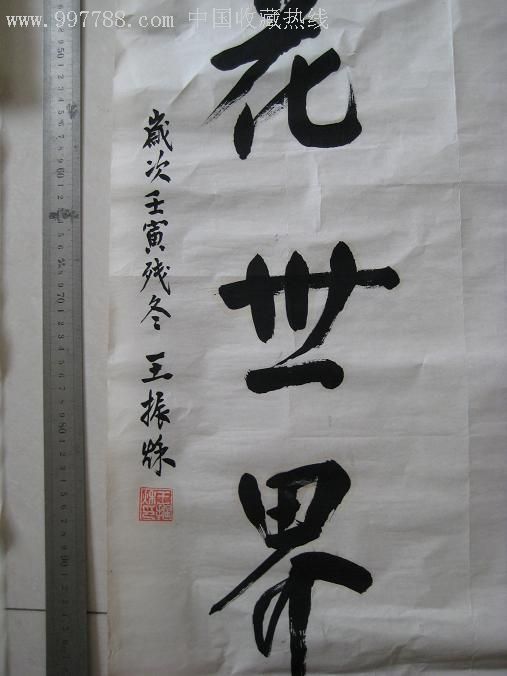 www.997788.com 中国收藏热线
花世界
歲次壬寅残冬 王振